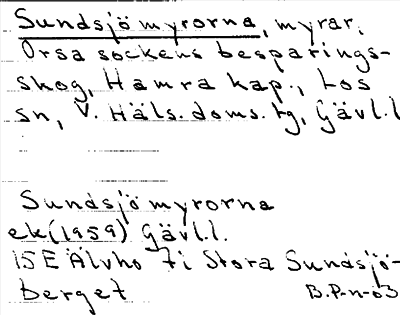 Sundsjömyrorna, myrar,
Orsa sockens besparings-
skog, Hamra kap., Los
sn, V. Häls. doms. tg, Gävl. l
Sundsjömyrorna
ek (1959) Gävl. l.
15E Älvho 7i Stora Sundsjö-
berget B.P-n-63